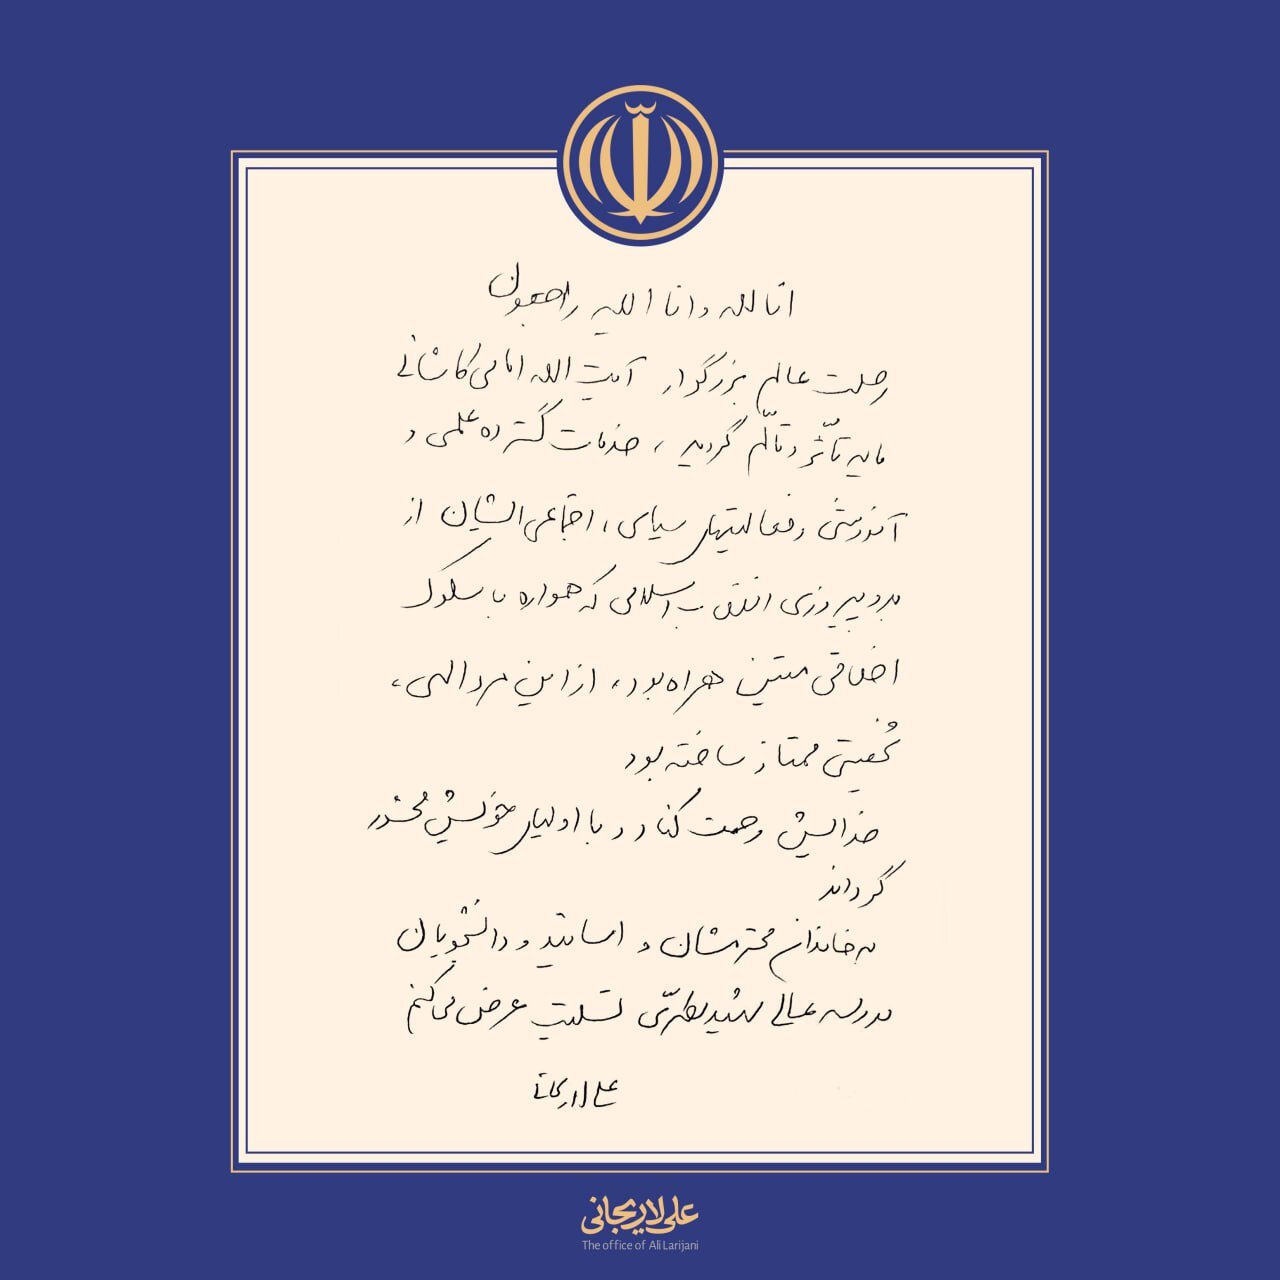 انا لله و انا الیه راجعون
رحلت عالم بزرگوار آیت الله امامی کاشانی
مایه تأثر و تألّم گردید، خدمات گسترده علمی و
آموزشی و فعالیتهای سیاسی، اجتماعی ایشان از
بدو پیروزی انقلاب اسلامی که همواره با سلوک
اخلاقی متین همراه بود، از این مرد الهی،
شخصیتی ممتاز ساخته بود
خدایش رحمت کناد و با اولیای خویش محشور
گرداند
به خاندان محترمشان و اساتید و دانشجویان
مدرسه عالی شهید مطهری تسلیت عرض می کنم
علی لاریجانی
علی لاریجانی
The office of Ali Larijani